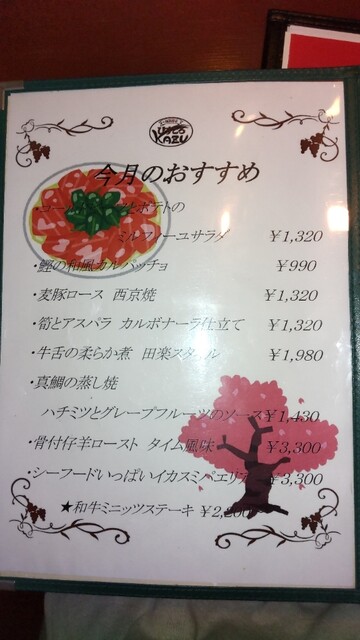 KAZU
今月のおすすめ
・コー とポテトの
ミルフィーユサラダ ￥1,320
・鰹の和風カルパッチョ ￥990
・麦豚ロース 西京焼 ￥1,320
・筍とアスパラ カルボナーラ仕立て ￥1,320
・牛舌の柔らか煮 田楽スタイル ￥1,980
・真鯛の蒸し焼
ハチミツとグレープフルーツのソース￥1,430
・骨付仔羊ロースト タイム風味 ￥3,300
・シーフードいっぱいイカスミパエリア ￥3,300
★和牛ミニッツステーキ